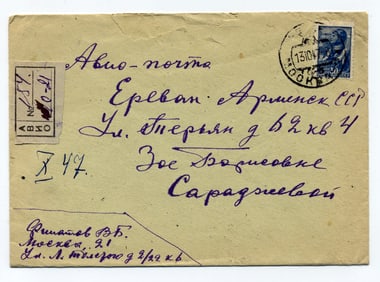 Авио-почта
Ереван. Армянск ССР
Ул. Теръян д 62 кв 4
Зое Борисовне
Сараджевой
АВИО
№
X 47.
Филатов В.Б.
Москва, 21
Ул. Л. Толстого д 2/22 кв
МОСКВА